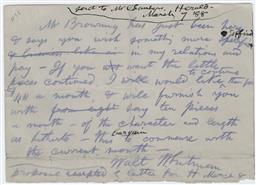 sent to Mr Chambers, Herald -
March 7 '88
Mr Browning has just been here
& says you wish something more definite
in my relations and
pay - If you want the little
pieces continued I will would like
a month, & will furnish you
with say ten pieces
a month - of the character and length
as hitherto this bargain to commence with
the current month -
Walt Whitman
propose accepted & letter for H March 8